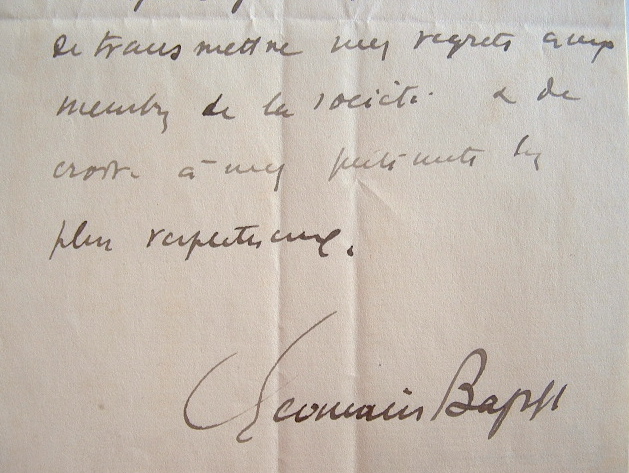 de transmettre mes regrets aux
membres de la société & de
croire à mes sentiments les
plus respectueux.
Germain Bapst